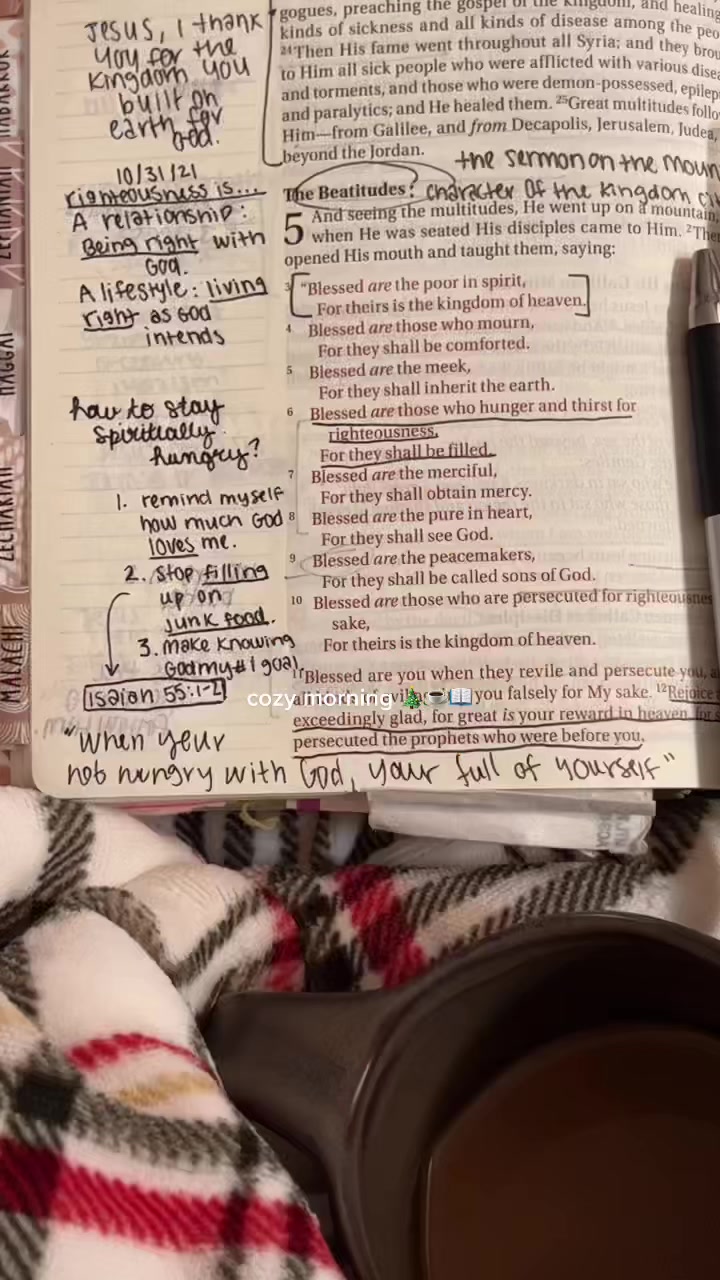 Jesus, I thank
you for the
kingdom you
built on
earth for
God.
10/31/21
righteousness is...
A relationship:
Being right with
God.
A lifestyle: living
right as God
intends
how to stay
spiritually
hungry?
1. remind myself
how much God
loves me.
2. stop filling
up on
junk food.
3. make knowing
God my #1 goal.
Isaiah 55:1-2
"When your
not hungry with God, your full of yourself"
gogues, preaching the gospel of the kingdom, and healing
kinds of sickness and all kinds of disease among the peo
24Then His fame went throughout all Syria; and they brou
to Him all sick people who were afflicted with various disea
and torments, and those who were demon-possessed, epilep
and paralytics; and He healed them. 25Great multitudes follo
Him—from Galilee, and from Decapolis, Jerusalem, Judea,
beyond the Jordan.
the sermon on the moun
The Beatitudes: character of the kingdom cit
5 And seeing the multitudes, He went up on a mountain,
when He was seated His disciples came to Him. 2The
opened His mouth and taught them, saying:
3 "Blessed are the poor in spirit,
For theirs is the kingdom of heaven.
4 Blessed are those who mourn,
For they shall be comforted.
5 Blessed are the meek,
For they shall inherit the earth.
6 Blessed are those who hunger and thirst for
righteousness,
For they shall be filled.
7 Blessed are the merciful,
For they shall obtain mercy.
8 Blessed are the pure in heart,
For they shall see God.
9 Blessed are the peacemakers,
For they shall be called sons of God.
10 Blessed are those who are persecuted for righteousnes
sake,
For theirs is the kingdom of heaven.
11"Blessed are you when they revile and persecute you, a
evil you falsely for My sake. 12Rejoice
exceedingly glad, for great is your reward in heaven, for s
persecuted the prophets who were before you.
cozy morning 🎄☕📖
HABAKKUK
ZEPHANIAH
HAGGAI
ZECHARIAH
MALACHI